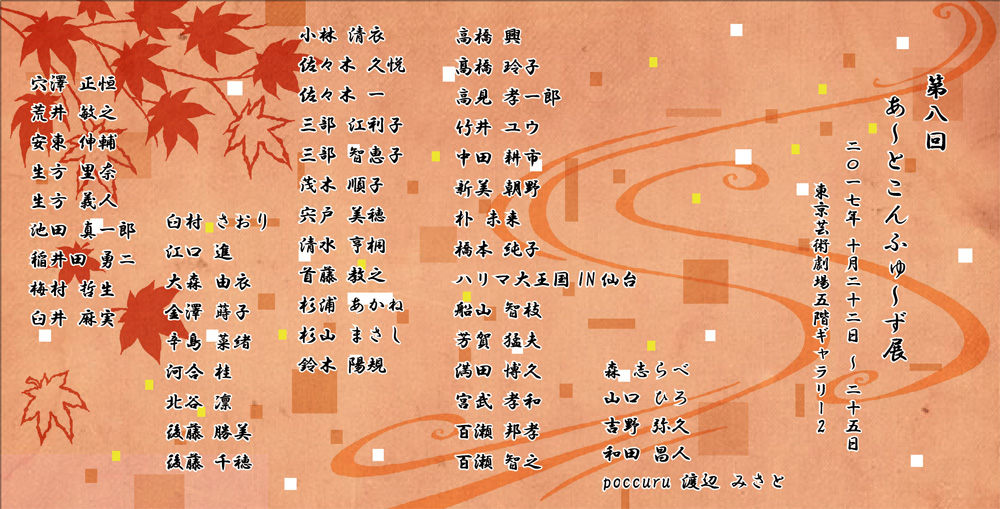 第八回
あ～とこんふゅ～ず展
二〇一七年 十月二十二日 ～ 二十五日
東京芸術劇場五階ギャラリー2
穴澤 正恒
荒井 敏之
安東 仲輔
生方 里奈
生方 義人
池田 真一郎
稲井田 勇二
梅村 哲生
臼井 麻実
臼村 さおり
江口 進
大森 由衣
金澤 蒔子
辛島 菜緒
河合 桂
北谷 凛
後藤 勝美
後藤 千穂
小林 清衣
佐々木 久悦
佐々木 一
三部 江利子
三部 智恵子
茂木 順子
宍戸 美穂
清水 亨桐
首藤 教之
杉浦 あかね
杉山 まさし
鈴木 陽規
高橋 興
髙橋 玲子
高見 孝一郎
竹井 ユウ
中田 耕市
新美 朝野
朴 未来
橋本 純子
ハリマ大王国 IN 仙台
船山 智枝
芳賀 猛夫
満田 博久
宮武 孝和
百瀬 邦孝
百瀬 智之
森 志らべ
山口 ひろ
吉野 弥久
和田 昌人
poccuru 渡辺 みさと